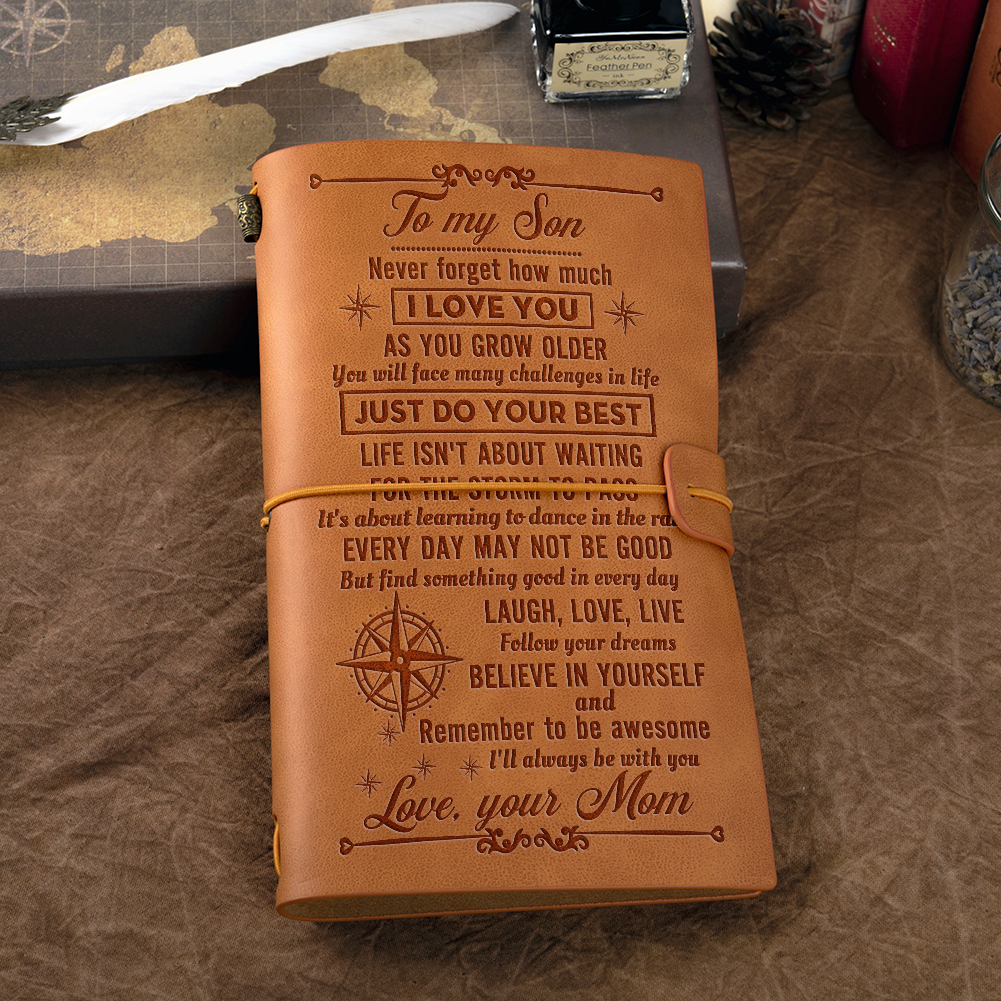 Feather Pen
ink
To my Son
Never forget how much
I LOVE YOU
AS YOU GROW OLDER
You will face many challenges in life
JUST DO YOUR BEST
LIFE ISN'T ABOUT WAITING
FOR THE STORM TO PASS
It's about learning to dance in the
EVERY DAY MAY NOT BE GOOD
But find something good in every day
LAUGH, LOVE, LIVE
Follow your dreams
BELIEVE IN YOURSELF
and
Remember to be awesome
I'll always be with you
Love, your Mom